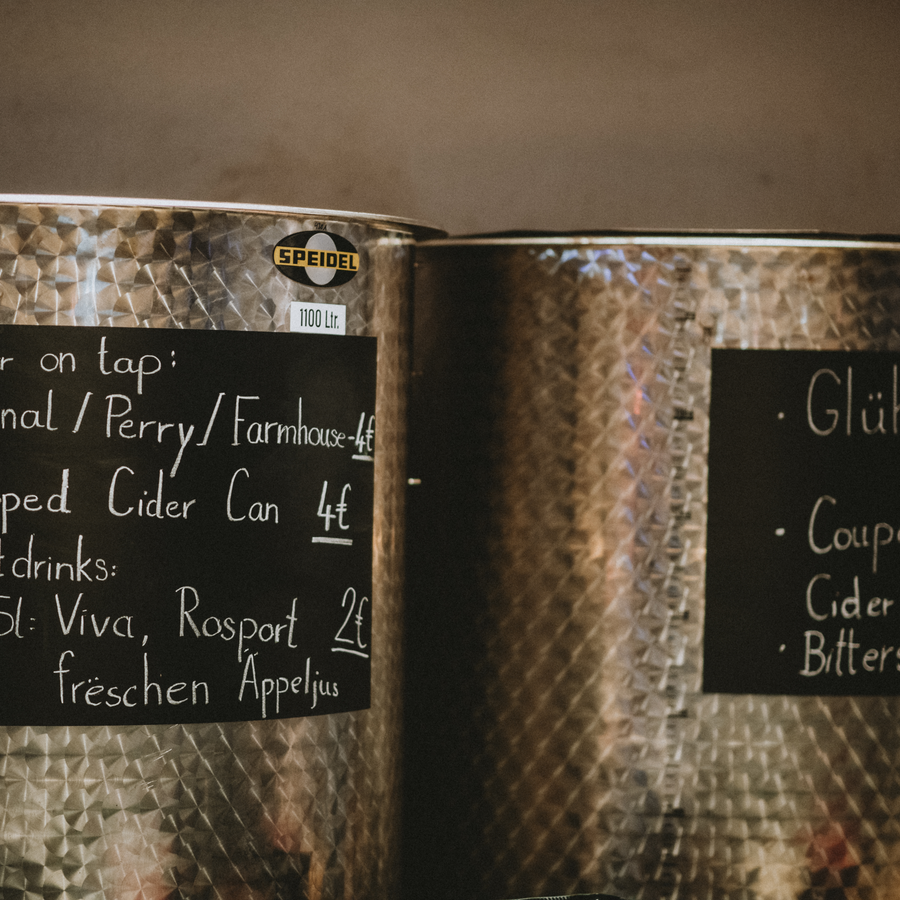 SPEIDEL
1100 Ltr.
r on tap:
nal / Perry / Farmhouse - 4€
ped Cider Can 4€
t drinks:
5l: Viva, Rosport 2€
frëschen Äppeljus
· Glüh
· Coup
Cider
· Bitters